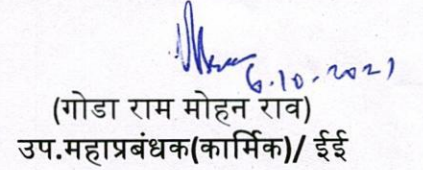 6.10.2021
(गोडा राम मोहन राव)
उप.महाप्रबंधक(कार्मिक)/ ईई